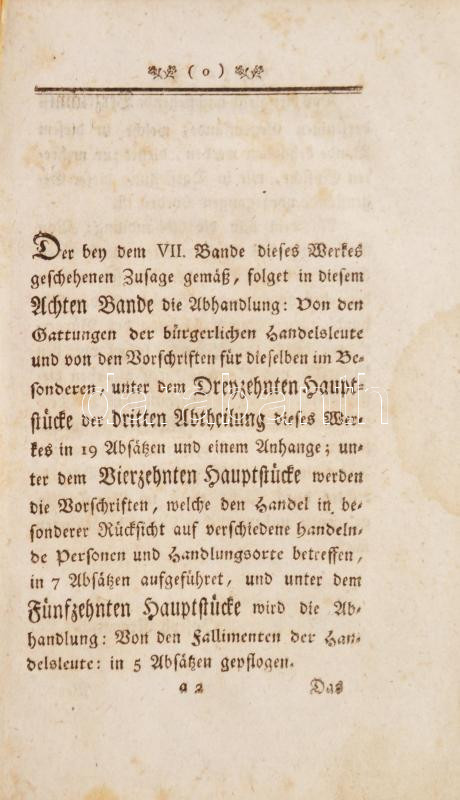 ( o )
Der bey dem VII. Bande dieses Werkes
geschehenen Zusage gemäß, folget in diesem
Achten Bande die Abhandlung: Von den
Gattungen der bürgerlichen Handelsleute
und von den Vorschriften für dieselben im Be-
sonderen, unter dem Dreyzehnten Haupt-
stücke der dritten Abtheilung dieses Wer-
kes in 19 Absätzen und einem Anhange; un-
ter dem Vierzehnten Hauptstücke werden
die Vorschriften, welche den Handel in be-
sonderer Rücksicht auf verschiedene handeln-
de Personen und Handlungsorte betreffen,
in 7 Absätzen aufgeführet, und unter dem
Fünfzehnten Hauptstücke wird die Ab-
handlung: Von den Fallimenten der Han-
delsleute: in 5 Absätzen gepflogen.
a 2 Das